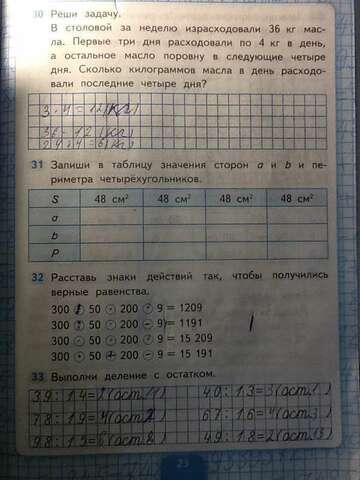 30 Реши задачу.
В столовой за неделю израсходовали 36 кг мас-
ла. Первые три дня расходовали по 4 кг в день,
а остальное масло поровну в следующие четыре
дня. Сколько килограммов масла в день расходо-
вали последние четыре дня?
3·4=12(кг)
36-12 (кг)
24:4=6(кг)
31 Запиши в таблицу значения сторон a и b и пе-
риметра четырёхугольников.
S 48 см² 48 см² 48 см² 48 см²
a
b
P
32 Расставь знаки действий так, чтобы получились
верные равенства.
300 50 200 9 = 1209
300 50 200 - 9 = 1191
300 50 200 9 = 15 209
300 50 + 200 - 9 = 15 191
33 Выполни деление с остатком.
39:14=2(ост.11) 40:13=3(ост.1)
78:19=4(ост.2) 67:16=4(ост.3)
98:15=6(ост.8) 49:18=2(ост.13)
23